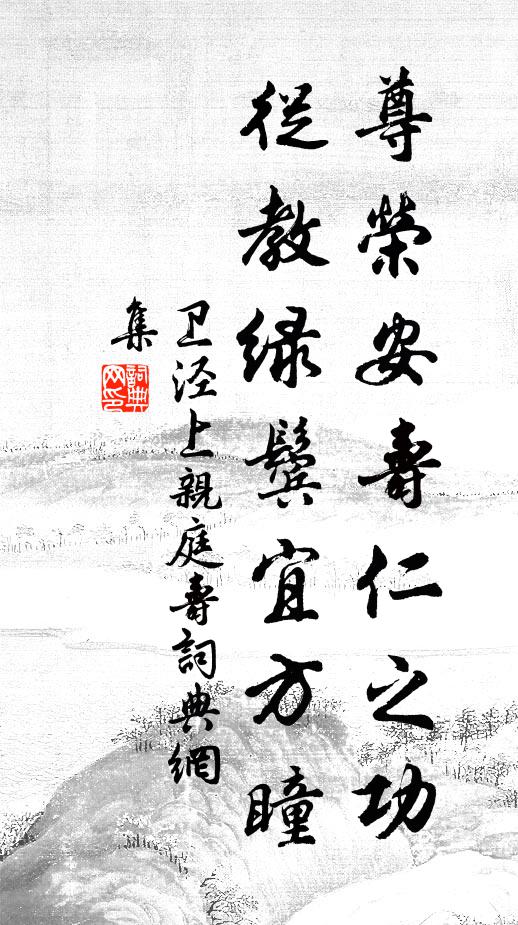 尊榮安壽仁之功
從教绿鬓宜方瞳
卫泾上親庭壽詞典網
集
詞典
网印